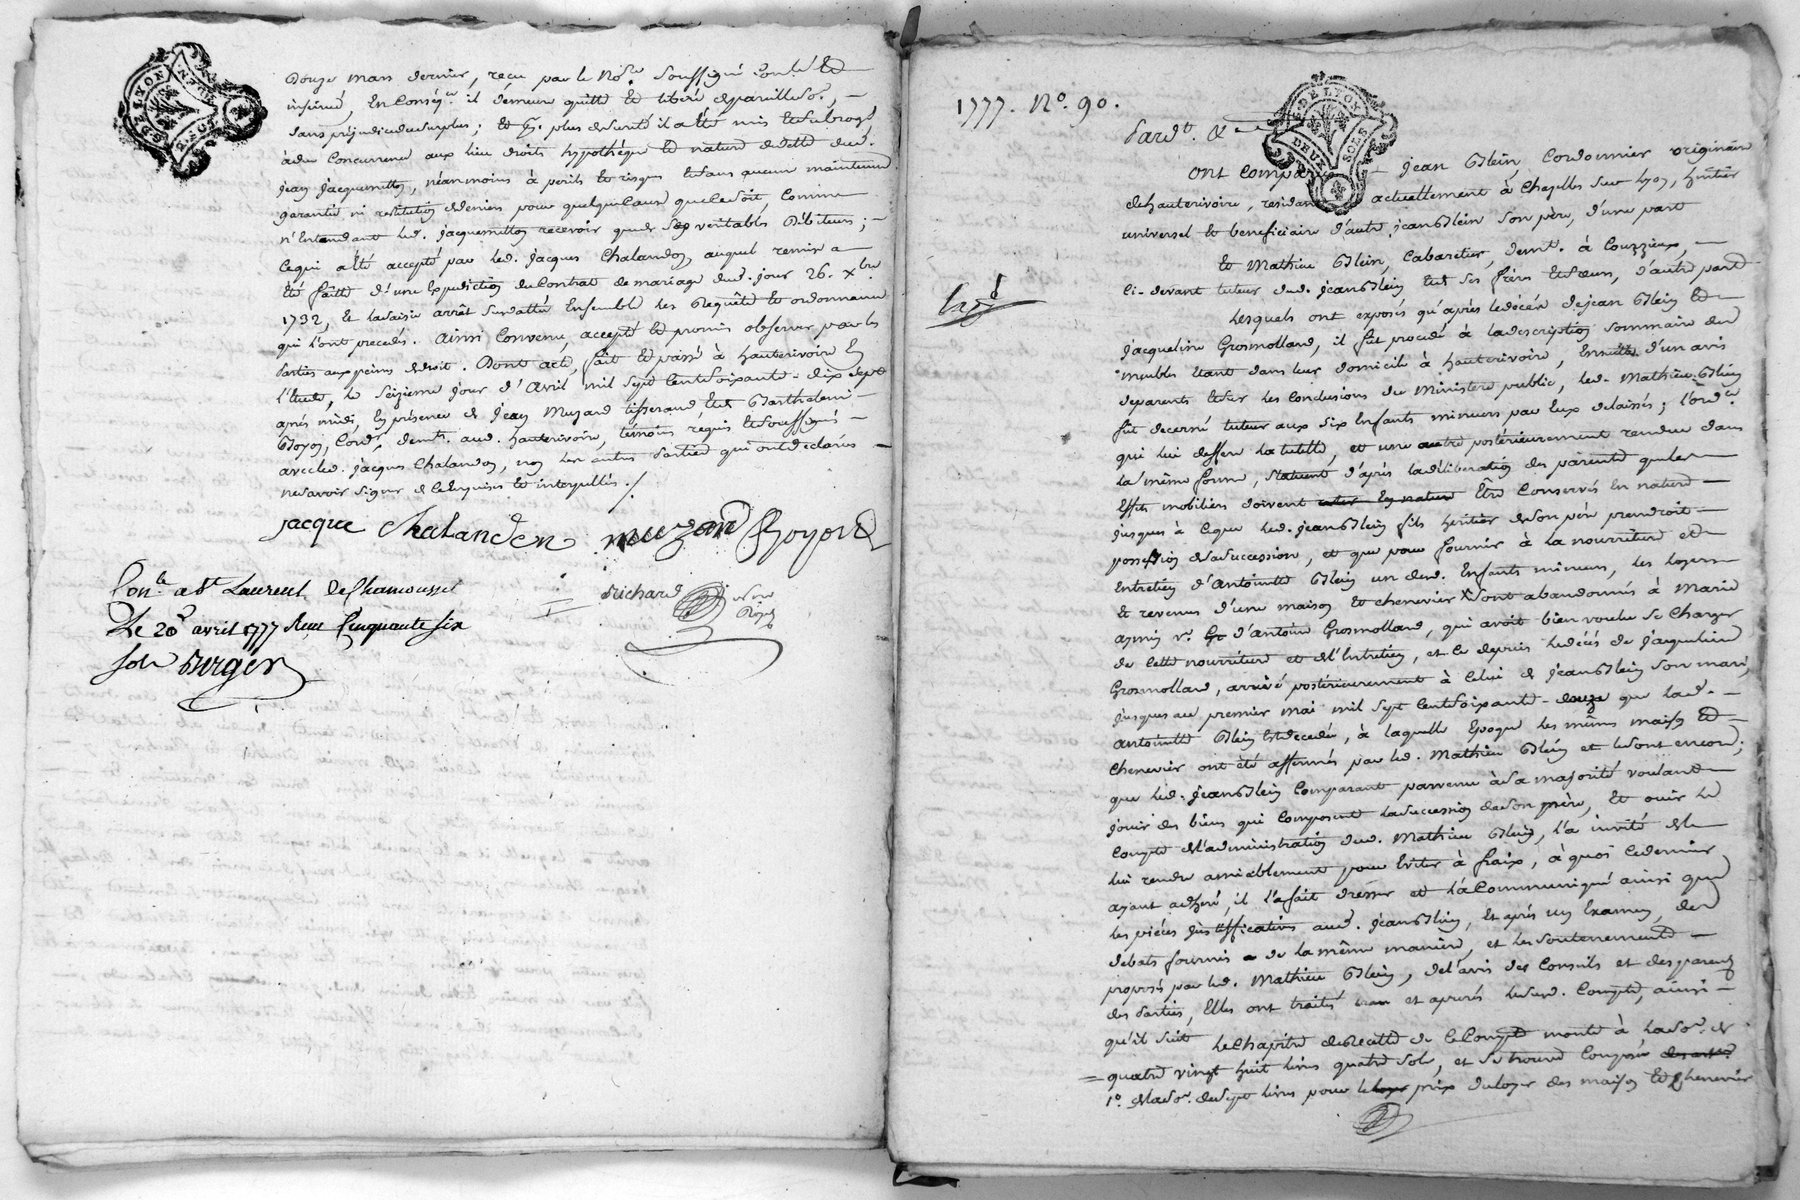 GEN. DE LYON
DEUX SOLS
Douze mars dernier, reçu par le No.re soussigné Con.lé Et
insinué, En Conséq.ce il demeure quitte Et libéré de pareille so.e, —
sans préjudice du surplus; Et p.r plus de sureté il a été mis Et subrogé
à due Concurrence aux lieu droits hypothèque Et nature de dette dud.
jean jacquemetton, néanmoins à perils Et risques Et sans aucun maintenue
garantie ni restitution de deniers pour quelque Cause que Ce soit, Comme
n'Entendant led. jacquemetton recevoir que de ses veritables Débiteurs; —
Ce qui a été accepté par led. Jacques Chalandon, auquel remise a
Eté faitte d'une Expedition du Contrat de mariage dud. jour 26. Xbre
1732, Et la saisie arrêt sur datte Ensemble les Requête Et ordonnance
qui l'ont precedés. Ainsi Convenu, accepté Et promis observer par les
Parties aux peines de droit. Dont acte, fait Et passé à hauterivoire En
l'Etude, le seizieme jour d'Avril mil sept Cent soixante-dix sept
après midi, En présence de jean Muzard tisserand, Et de Barthelemi —
Boyon, Cord.r demt. aud. hauterivoire, témoins requis Et soussignés —
avec led. jacques Chalandon, non les autres Parties qui ont declarés —
ne savoir signer de Ce Enquises Et interpellés./.
jacque Chalanden muzard Boyond
Con.le a St Laurent de Chamousset
Le 20 avril 1777 Reçu Cinquante six
sols Berger
Richard
No.re
Royal
1777. No. 90.
GEN. DE LYON
DEUX SOLS
Pard.t &
Ont Compar jean Blein, Cordonnier originaire
de hauterivoire, residant actuellement à Chazelles sur Lyon, héritier
universel Et beneficiaire d'autre jean Blein son père, d'une part
Et Mathieu Blein, Cabaretier, demt. à Couzzieux, —
Ci-devant tuteur dud. jean Blein Et de ses frères Et soeurs, d'autre part
Lesquels ont exposés qu'après le décès de jean Blein Et —
jacqueline Grosmolland, il fut procédé à la description sommaire des
meubles Etant dans leur domicile à hauterivoire, Ensuitte d'un avis
de parents Et sur les Conclusions du Ministere public, led. Mathieu Blein
fût decerné tuteur aux six Enfants mineurs par Eux delaissés; l'ord.ce
qui lui deffere la tutelle, et une autre postérieurement rendue dans
la même forme, statuent d'après la déliberation des parents que les —
Effets mobiliers doivent Être Conservés En nature —
jusques à Ce que led. jean Blein fils heritier de son père prendroit —
possession de sa succession, et que pour fournir à la nourriture et —
Entretien d'Antoinette Blein un desd. Enfants mineurs, les loyers
Et revenus d'une maison Et chenevier sont abandonnés à Marie
aymin v.e d'antoine Grosmolland, qui avoit bien voulu se Charger
de Cette nourriture et de l'Entretien, et Ce depuis le décès de jacqueline
Grosmolland, arrivé postérieurement à Celui de jean Blein son mari,
jusques au premier mai mil sept Cent soixante-douze que lad. —
antoinette Blein Est decedée, à laquelle Epoque les mêmes maison Et —
chenevier ont été affermés par led. Mathieu Blein et le sont encore;
que led. jean Blein Comparant parvenu à sa majorité voulant —
jouir des biens qui Composent la succession de son père, Et ouir le
Compte de l'administration dud. Mathieu Blein, l'a invité de le —
lui rendre amicablement pour Eviter à fraix, à quoi Ce dernier
ayant adheré, il l'a fait dresser et l'a Communiqué ainsi que
les pièces justifficatives aud. jean Blein, Et après un Examen, des
debats fournis de la même maniere, et les soutenements —
proposés par led. Mathieu Blein, de l'avis des Conseils et des parents
des Parties, Elles ont traités et apurés le susd. Compte, ainsi —
qu'il suit Le Chapitre de Recette de Ce Compte monte à la so.e de
quatre vingt huit livres quatre sols, et se trouve Composé
1°. de la so.e de sept livres pour le prix du loyer des maison Et chenevier